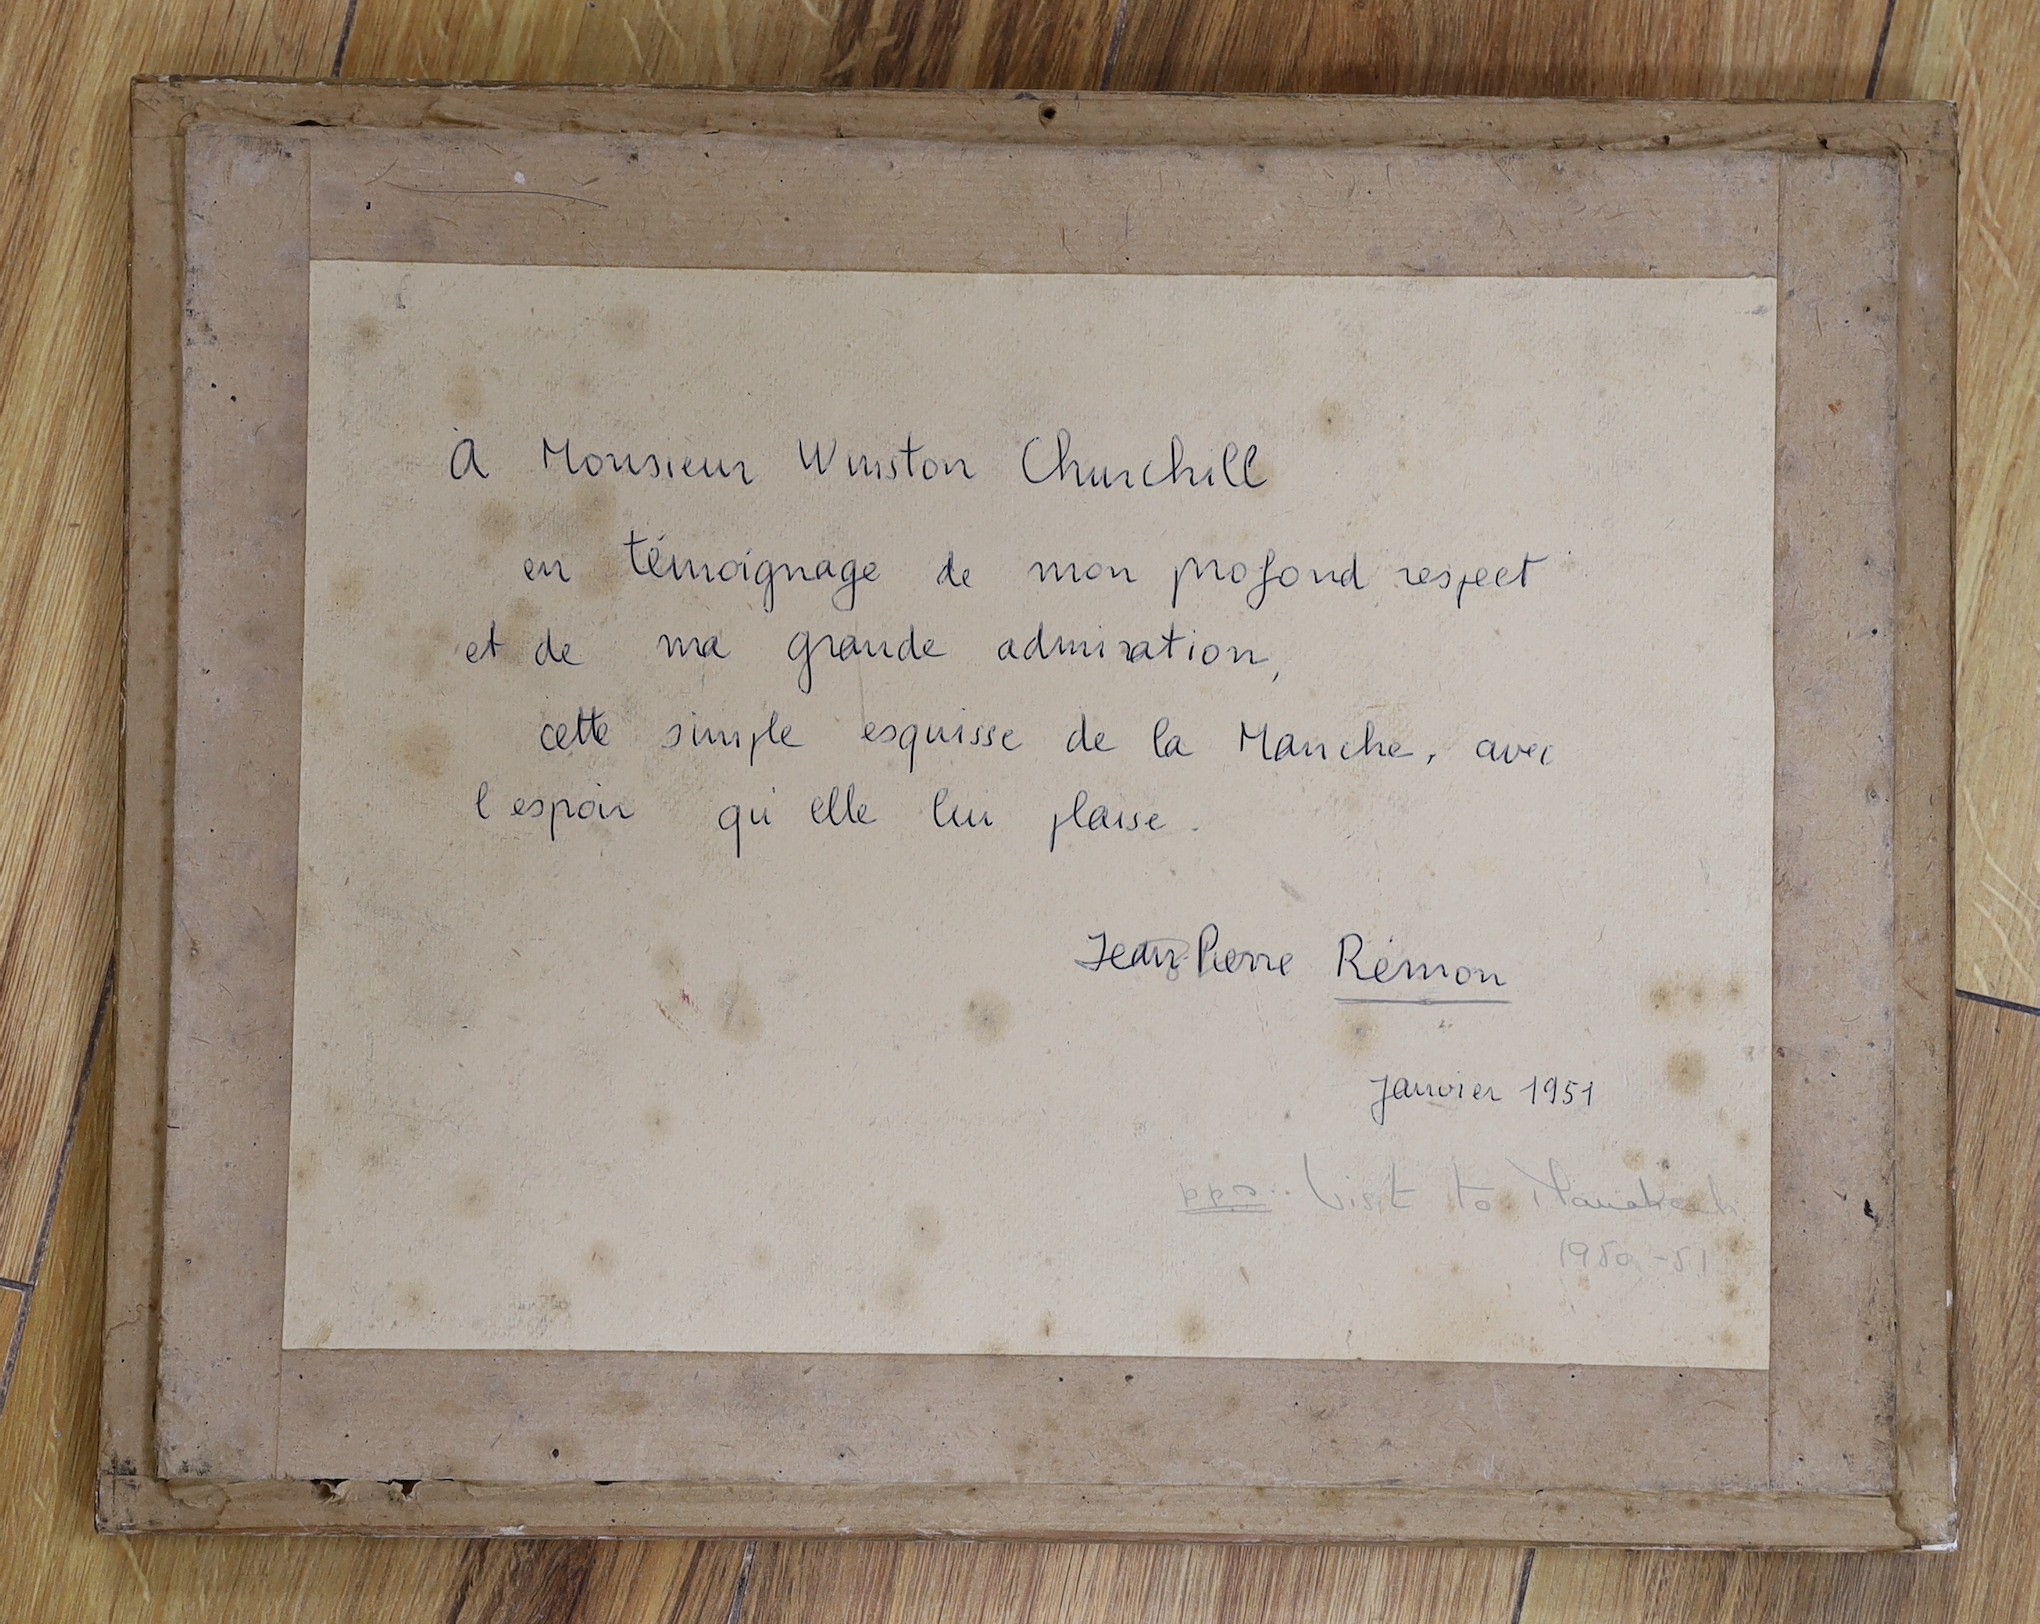 À Monsieur Winston Churchill
en témoignage de mon profond respect
et de ma grande admiration,
cette simple esquisse de la Manche, avec
l'espoir qu'elle lui plaise.
Jean-Pierre Rémon
Janvier 1951
Visit to Marrakech
1950-51